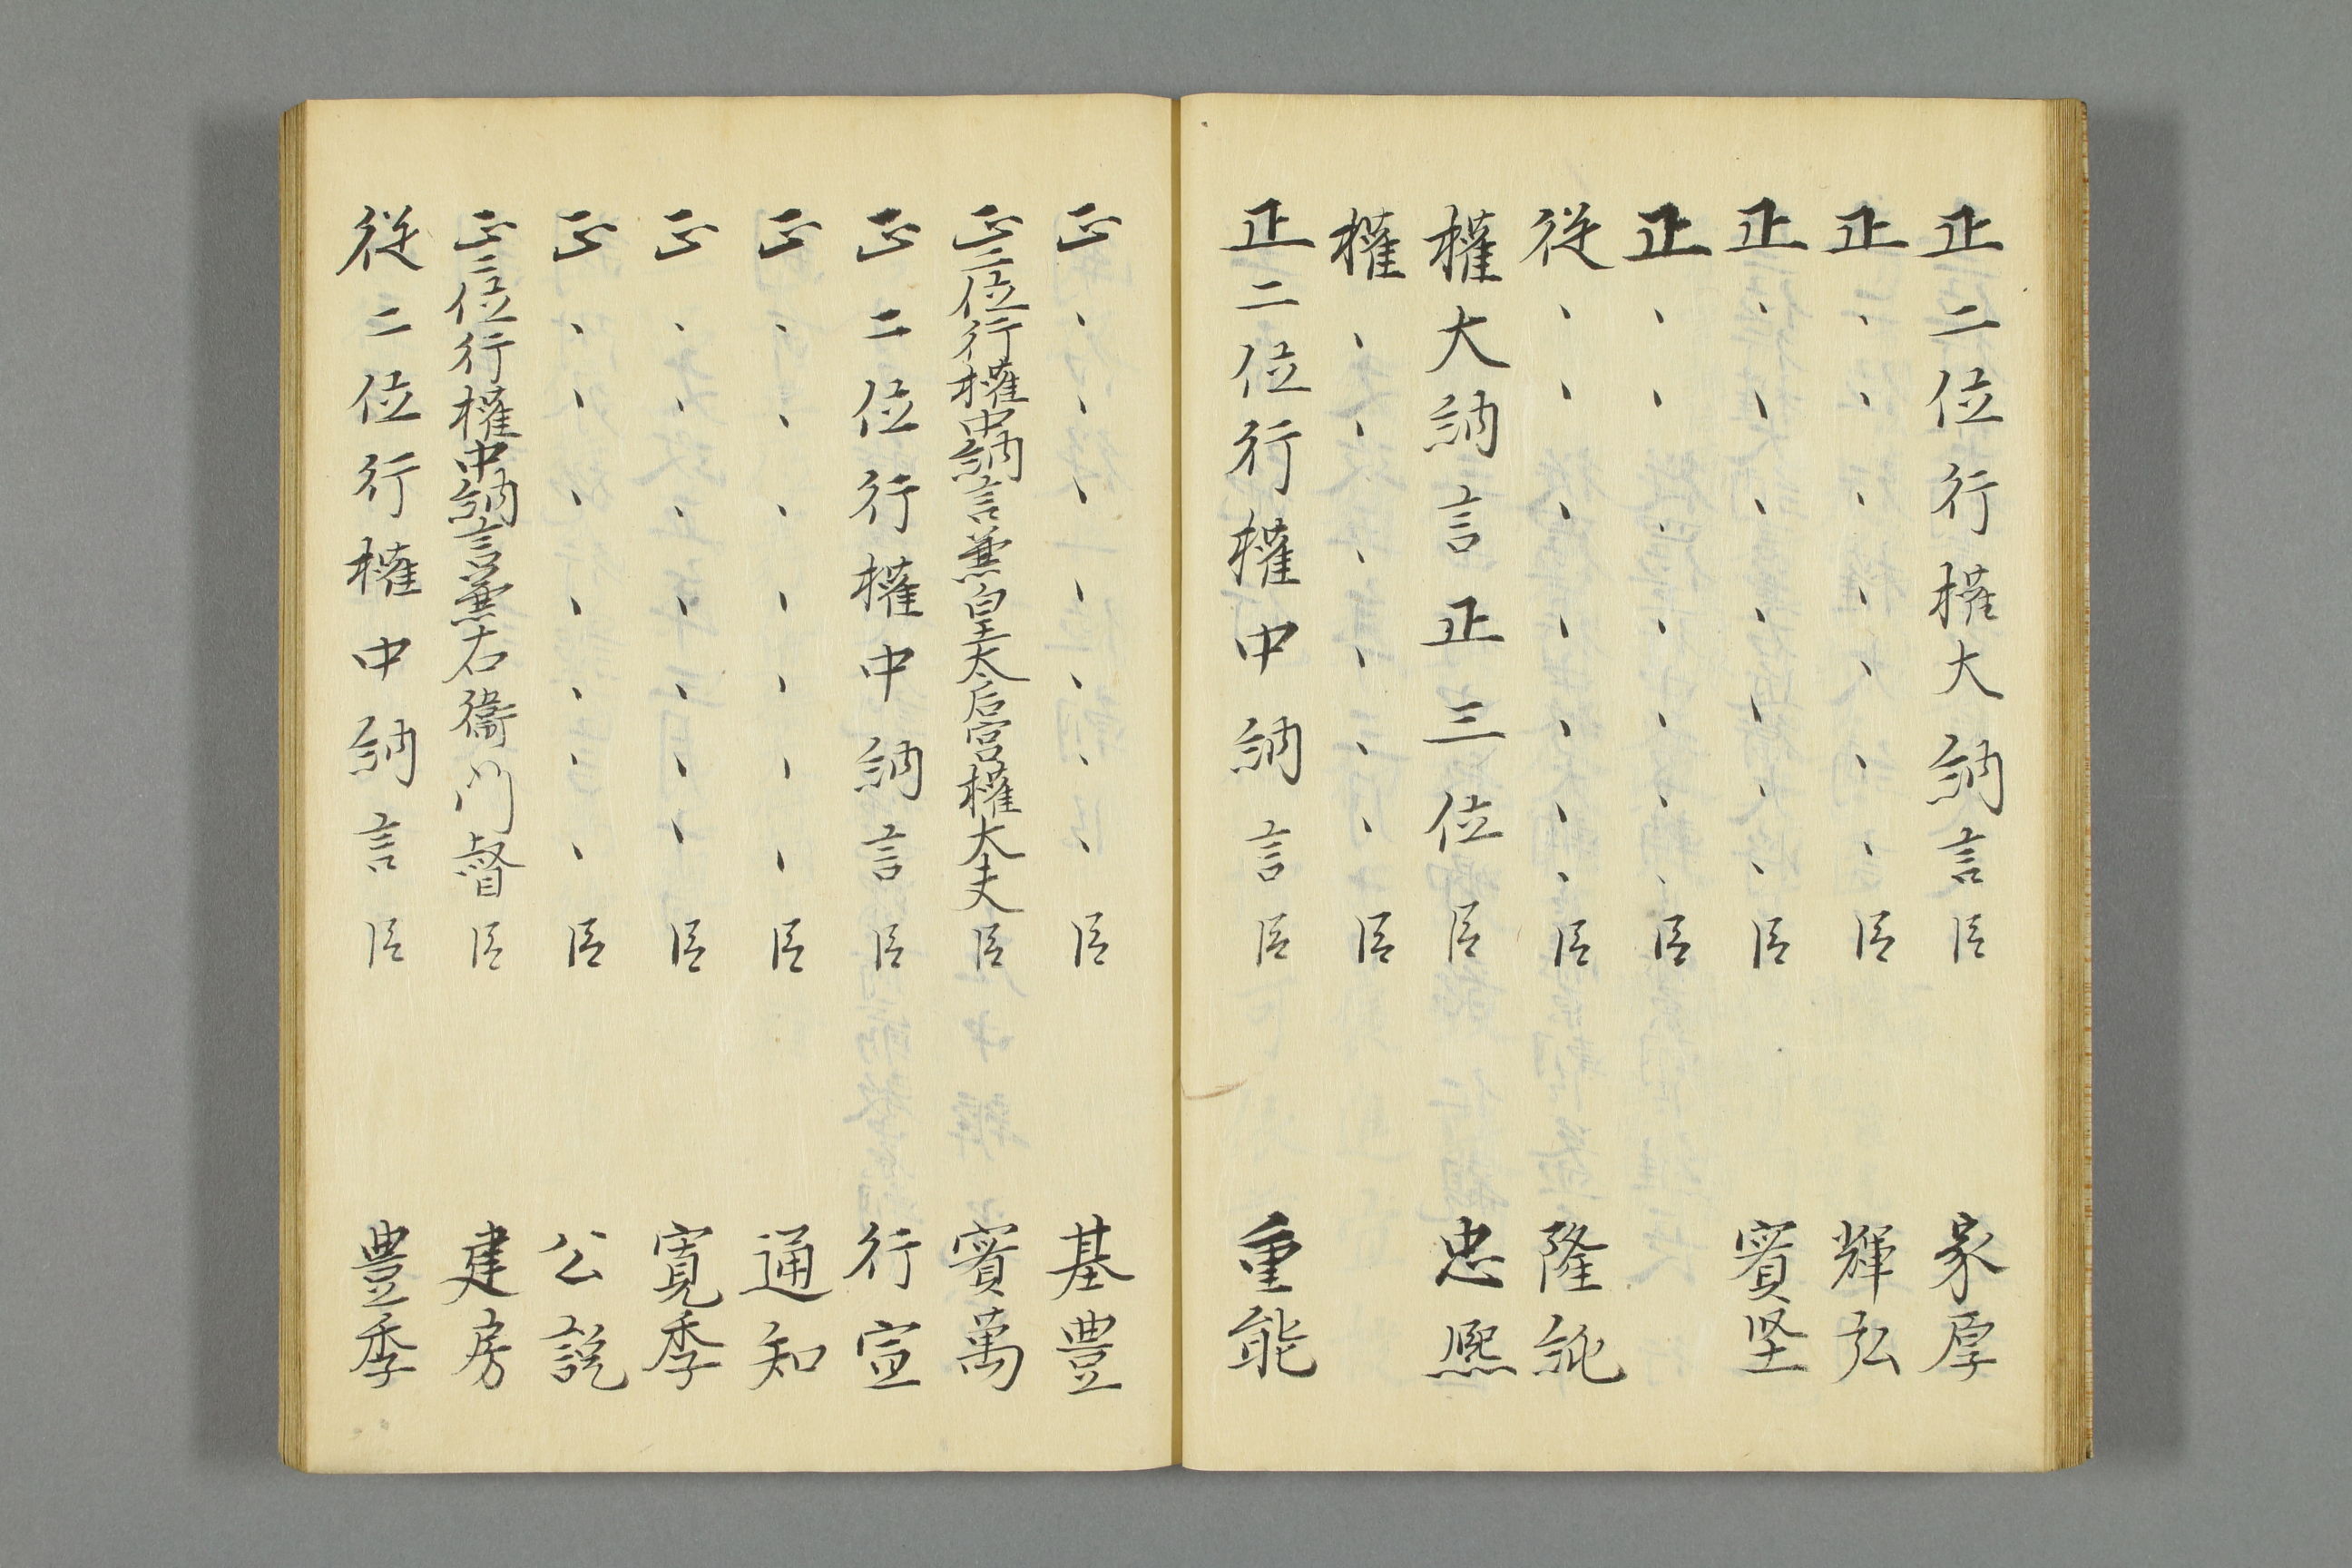 正二位行權大納言臣 家厚
正、、、、、、、臣 輝弘
正、、、、、、、臣 實堅
正、、、、、、、臣
從、、、、、、、臣 隆純
權大納言正三位臣 忠熈
權、、、、、、臣
正二位行權中納言臣 重能
正、、、、、、、臣 基豊
正二位行權中納言兼皇太后宮權大夫臣 實萬
正二位行權中納言臣 行宣
正、、、、、、、臣 通知
正、、、、、、、臣 寛季
正、、、、、、、臣 公説
正二位行權中納言兼右衞門督臣 建房
從二位行權中納言臣 豊季